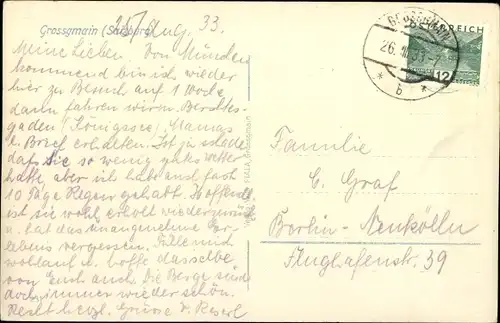 Grossgmain (Salzburg)
25/Aug. 33.
Meine Lieben. Von München
kommend bin ich wieder
hier zu Besuch auf 1 Woche
dann fahren wir n. Berchtes-
gaden (Königssee) Mamas
l. Brief erhalten. Ist ja schade
daß sie so wenig gutes Wetter
hatte, aber ich habe auch fast
10 Tage Regen gehabt. Hoffentl.
ist sie wohl erholt wieder zurück
u. hat das unangenehme
vergessen. Fühle mich
wohlauf u. hoffe dasselbe
von Euch auch. Die Berge sind
doch immer wieder schön.
Recht herzl. Grüsse v. Reserl
Familie
C. Graf
Berlin-Neukölln
Flughafenstr. 39
GROSSGMAIN
26. VIII 33-7
* b *
REICH
12